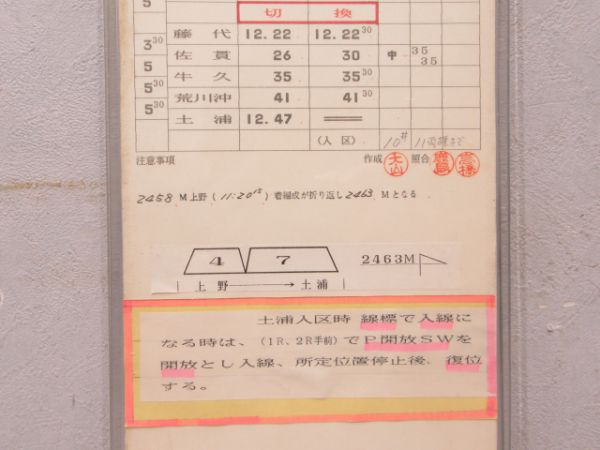 5
切 換
藤 代 12.22 12.22 30
3 30 佐 貫 26 30 申 35 35
5 牛 久 35 35 30
5 30 荒川沖 41 41 30
5 30 土 浦 12.47 ══
(入 区) 10# 11両標まで
注意事項 作成 大山 照合
2458 M上野 (11:20 15) 着編成が折り返し 2463 Mとなる
4 7 2463M
上 野 → 土 浦
土浦入区時 線標で入線に
なる時は、(1R、2R手前)でP開放SWを
開放とし入線、所定位置停止後、復位
する。